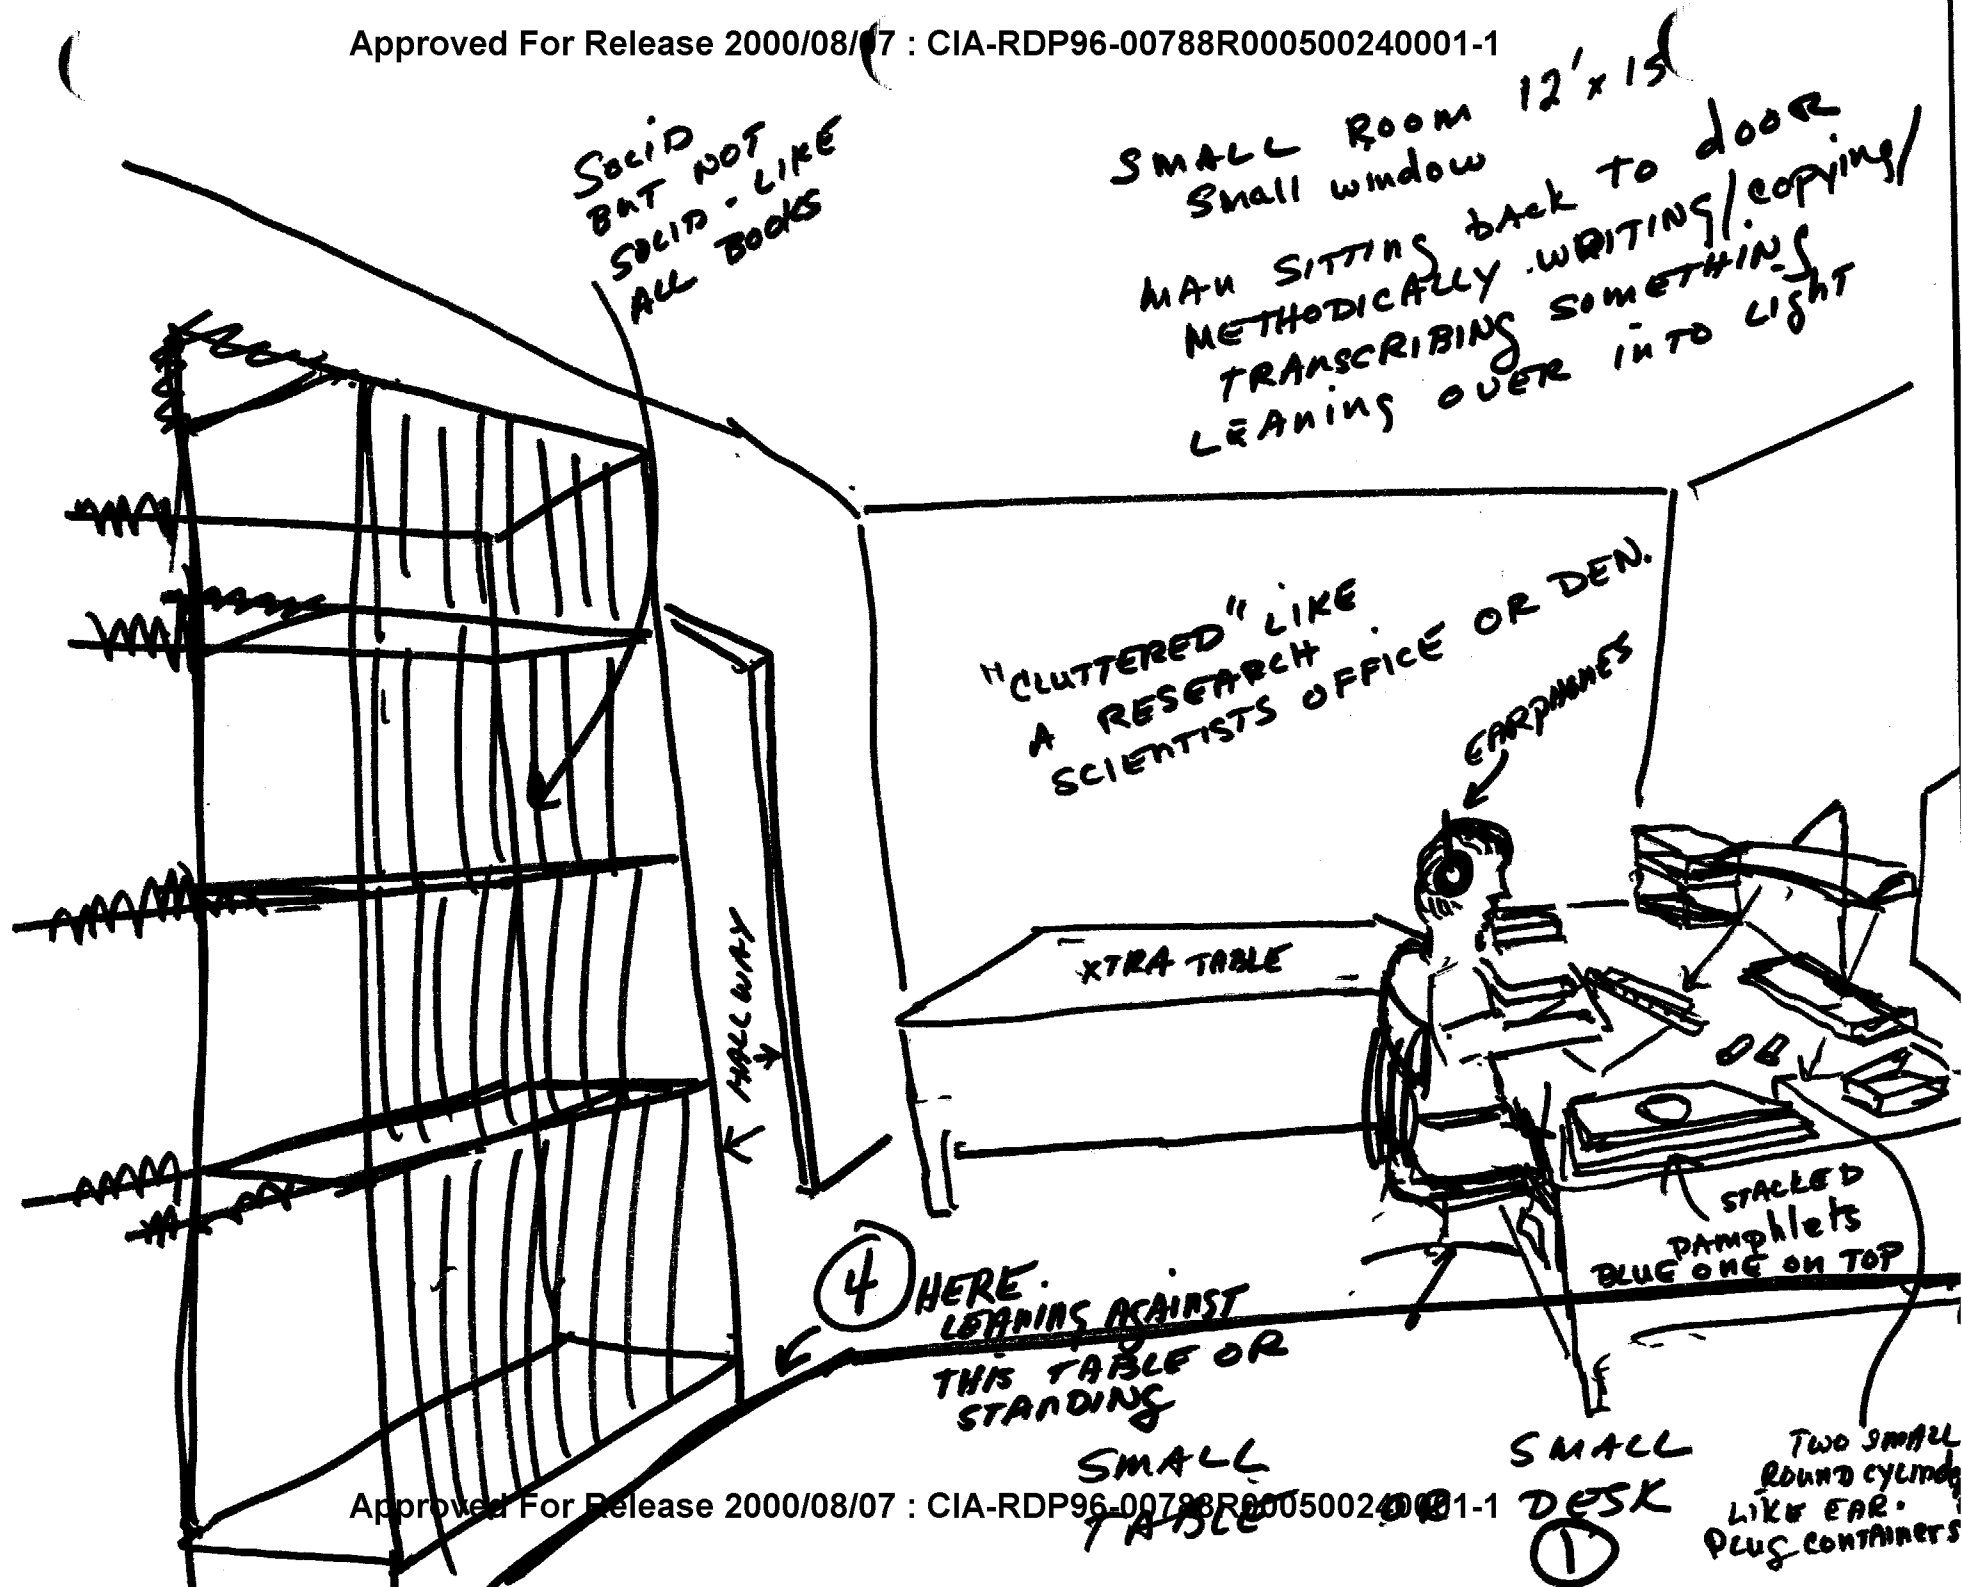 Approved For Release 2000/08/07 : CIA-RDP96-00788R000500240001-1
SOLID
BUT NOT
SOLID - LIKE
ALL BOOKS
SMALL ROOM 12' x 15
Small window
MAN SITTING back TO dOOR
METHODICALLY WRITING/copying/
TRANSCRIBING SOMETHING
LEANING OVER inTO LighT
"CLUTTERED" LIKE
A RESEARCH
SCIENTISTS OFFICE OR DEN.
EARPHONES
XTRA TABLE
HALLWAY
STACKED
PAmphlets
BLUE ONE ON TOP
4 HERE.
LEANING AGAINST
THIS TABLE OR
STANDING
SMALL
TABLE OR
SMALL
DESK
1
TWO SMALL
ROUND CYLINDE
LIKE EAR.
PLUG CONTAINERS
Approved For Release 2000/08/07 : CIA-RDP96-00788R000500240001-1